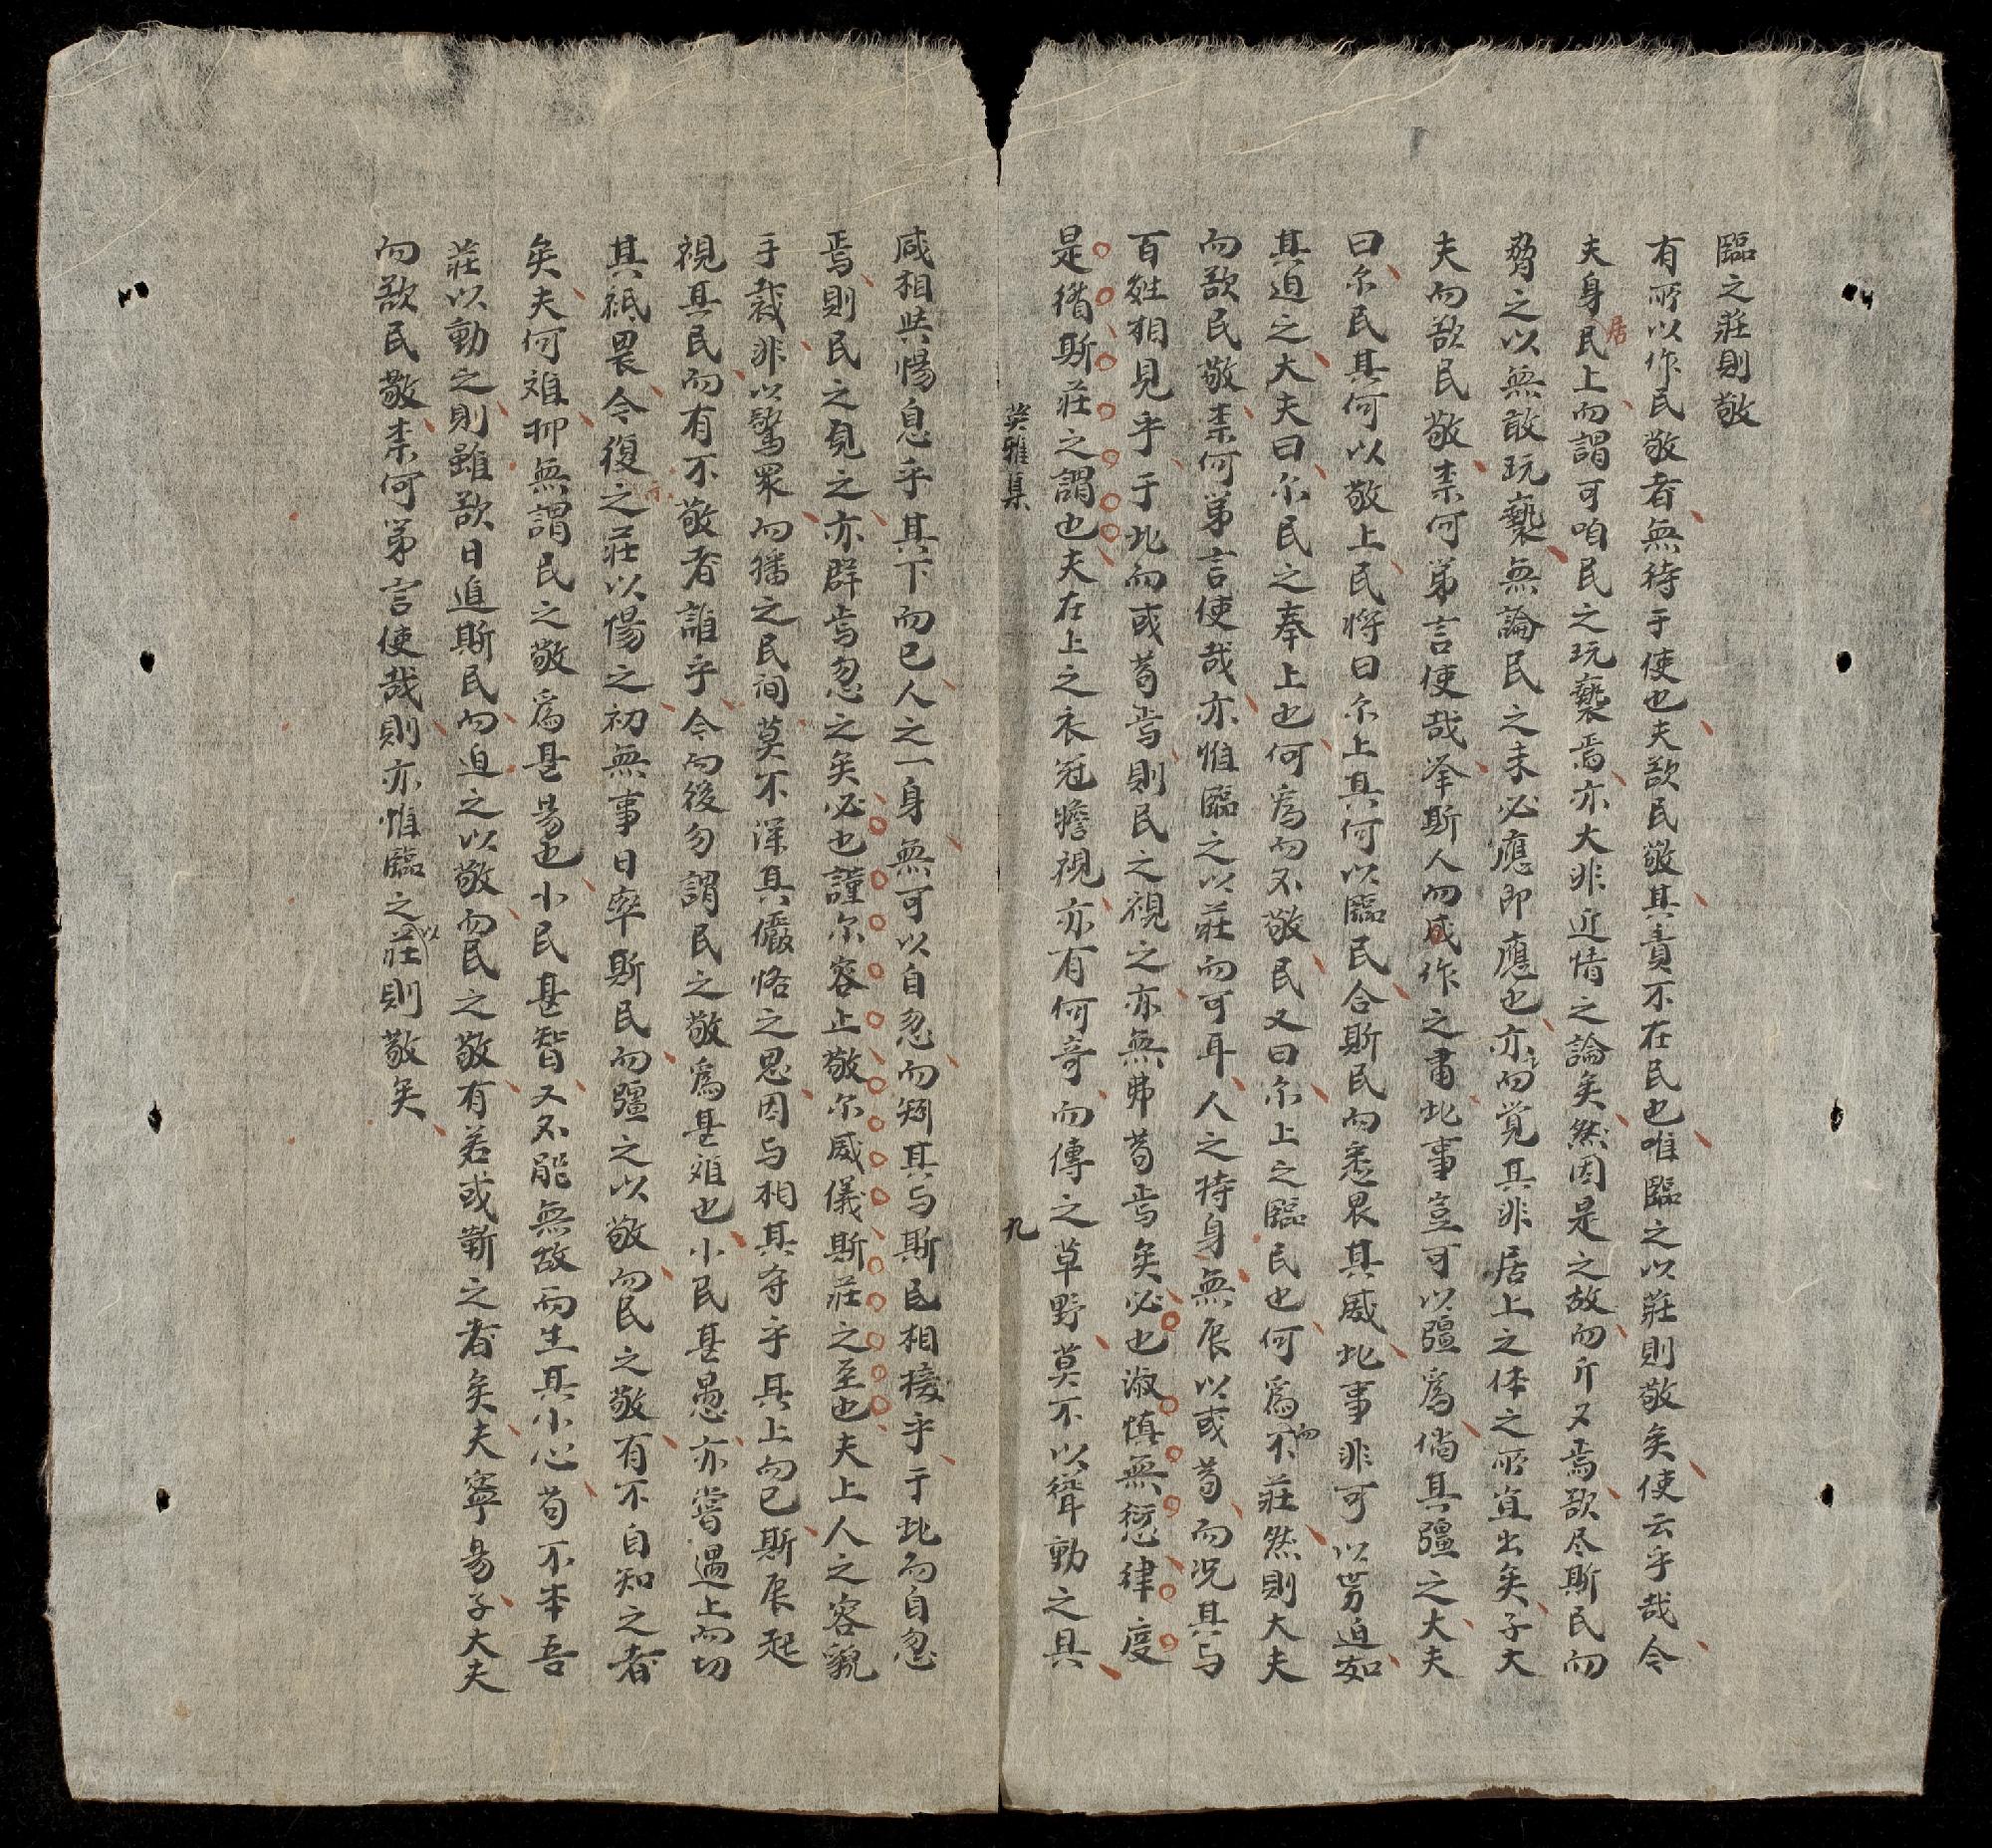 臨之莊則敬
有所以作民敬者無待于使也夫欲民敬其責不在民也唯臨之以莊則敬矣使云乎哉今
夫身居民上而謂可咱民之玩褻焉亦大非近情之論矣然因是之故而斤又焉欲尽斯民而
脅之以無敢玩褻無論民之未必應即應也亦之而覚其非居上之体之所宜出矣子大
夫而欲民敬柰何第言使哉举斯人而咸作之肅此事豈可以疆為倘其疆之大夫
曰尔民其何以敬上民將曰尔上其何以臨民合斯民而悉畏其威此事非可以劳迫如
其迫之大夫曰尔民之奉上也何為而不敬民又曰尔上之臨民也何為而不莊然則大夫
而欲民敬柰何第言使哉亦惟臨之以莊而可耳人之持身無辰以或苟而况其与
百姓相見乎于此而或苟焉則民之視之亦無弗苟焉矣必也淑慎無愆律度
是循斯莊之謂也夫在上之衣冠瞻視亦有何奇而傳之草野莫不以聳動之具
英雅集
九
咸相與惕息乎其下而已人之一身無可以自忽而矧其与斯民相接乎于此而自忽
焉則民之見之亦群焉忽之矣必也謹尔容止敬尔威儀斯莊之至也夫上人之容貌
于裁非以驚眾而播之民间莫不深其儼恪之思因与相其夺乎其上而已斯辰起
視其民而有不敬者誰乎今而後勿謂民之敬為甚难也小民甚愚亦嘗遇上而切
其祗畏今復之示莊以傷之初無事日率斯民而疆之以敬而民之敬有不自知之者
矣夫何难抑無謂民之敬為甚易也小民甚智又不能無故而生其小心苟不本吾
莊以動之則雖欲日追斯民而迫之以敬而民之敬有若或靳之者矣夫寧易子大夫
而欲民敬柰何第言使哉則亦惟臨之以莊則敬矣